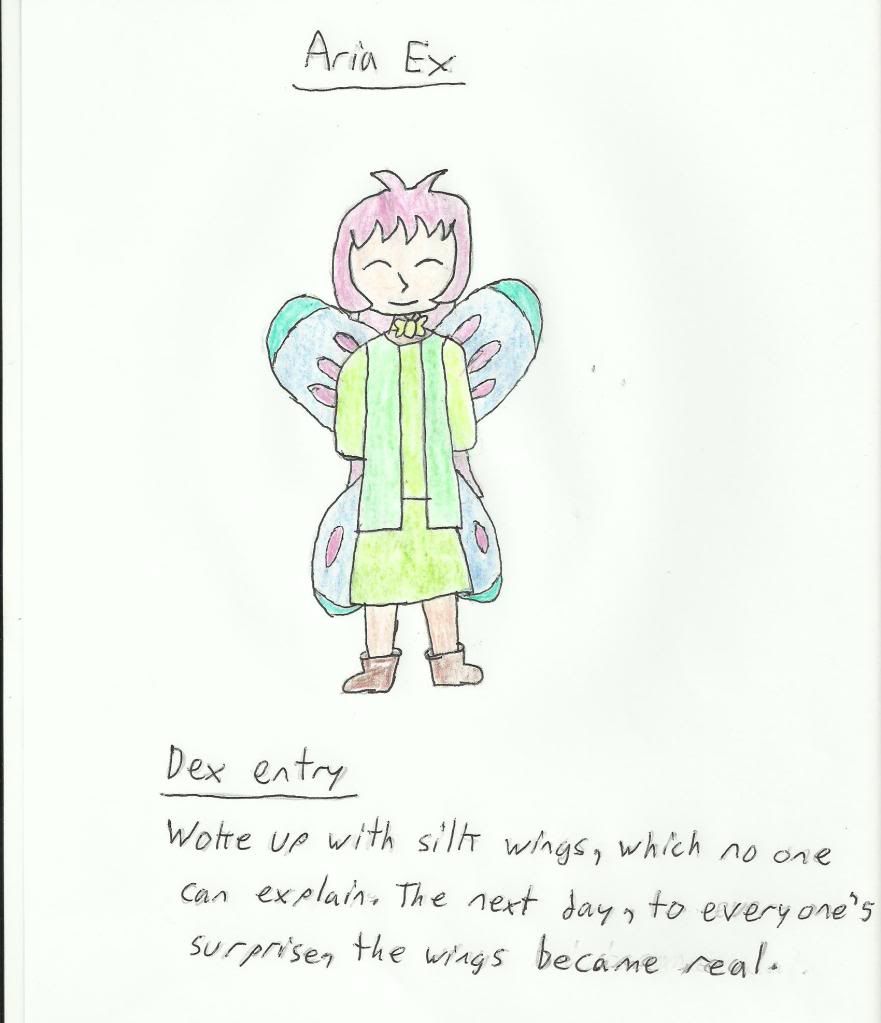 Aria Ex
Dex entry
Woke up with silk wings, which no one
can explain. The next day, to everyone's
surprise, the wings became real.